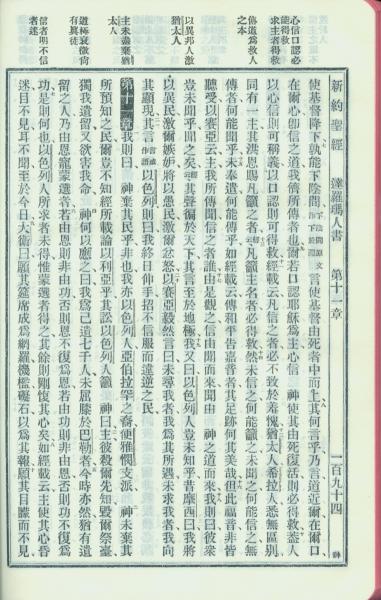 新約聖經 達羅瑪人書 第十一章 二百九十四
心信口認必
能得救
求主者得救
傳道爲救人
之本
以異邦人激
猶太人
主未盡棄猶
太人
道極衰微尙
有眞徒
信者明不信
者迷
使基督降下孰能下陰間
言使基督由死者中而上其何言乎乃言道近爾在爾口
在爾心卽信之道我儕所傳者也爾若口認耶穌爲主心信 神使其由死復活則必得救蓋人
以心信則可稱義以口認則可得救經載云凡信之者必不致於羞愧猶太人希拉人悉無區別
同有一主其洪恩賜凡籲之者云凡籲主名者必得救然未信之何能籲之未聞之何能信之無
傳者何能聞乎未奉遣何能傳乎如經載云傳和平告嘉音者其足跡何其美哉但此福音非皆
聽受以賽亞云主我所傳聞信之者誰由是觀之信由聞而來聞由 神之道而來我則曰彼衆
豈未聞乎聞之矣云其聲徧於天下其言至於地極我又曰以色列人豈未知乎昔摩西曰我將
以異民激爾嫉妒將以愚民激爾忿怒以賽亞毅然言曰未尋我者我爲其所遇未求我者我向
其顯現其言以色列則曰我終日伸手招不信服而違逆之民
第十一章我則曰 神棄其民乎非也我亦以色列人亞伯拉罕之裔便雅憫支派 神未棄其
所預知之民爾豈不知經所載論以利亞乎其訟以色列人籲 神曰主彼殺爾先知毀爾祭臺
獨我遺留又欲害我命 神何以應之曰我爲己遺七千人未屈膝於巴勒者今時亦然猶有遺
留之人乃由恩寵蒙選者若由恩則非由功否則恩不復爲恩若由功則非由恩否則功不復爲
功是則何也以色列人所求者未得惟蒙選者得之其餘則剛愎其心矣如經載云主使其心昏
迷目不見耳不聞至於今日大衞曰願其筵席成爲網羅機檻礙石以爲其報願其目矇而不見